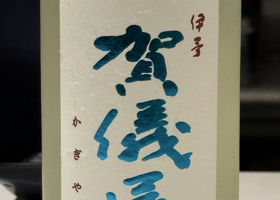 伊予
賀儀屋
かぎや